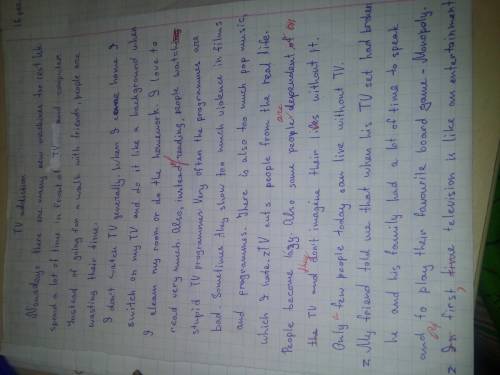 TV addiction
Nowadays there are many new machines too rest but
spend a lot of time in front of TV and computer
Instead of going for a walk with friends, people are
wasting their time.
I don't watch TV generally. When I come home I
switch on my TV and do it like a background when
I clean my room or do the homework. I love to
read very much. Also, instead of reading, people watch
stupid TV programmes. Very often the programmes are
bad. Sometimes they show too much violence in films
and programmes. There is also too much pop music,
which I hate. TV cuts people from the real life.
People become lazy. Also some people are dependent of on
the TV and they don't imagine their lifes without it.
Only a few people today can live without TV.
z My friend told me that when his TV set had broken
he and his family had a lot of time to speak
and to play their favourite board game - Monopoly.
z In first time television is like an entertainment